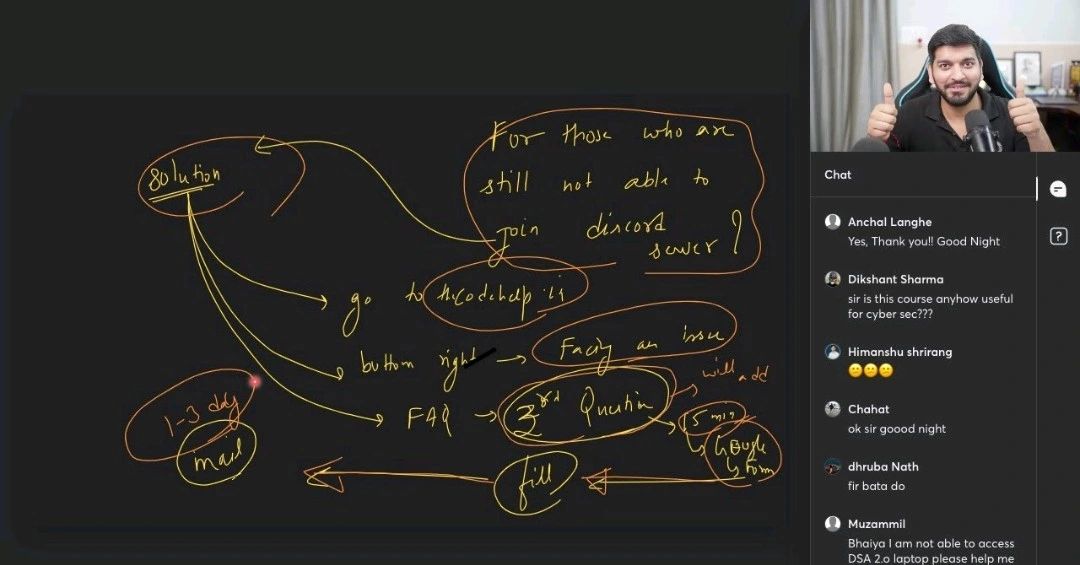 For those who are
still not able to
join discord
server ?
solution
go to thecodehelp.in
bottom right → Facing an issue
FAQ → 3rd Question
will add
15 min
Google
form
fill
1-3 day
mail
Chat
Anchal Langhe
Yes, Thank you!! Good Night
Dikshant Sharma
sir is this course anyhow useful
for cyber sec???
Himanshu shrirang
😕😕😕
Chahat
ok sir goood night
dhruba Nath
fir bata do
Muzammil
Bhaiya I am not able to access
DSA 2.o laptop please help me
?